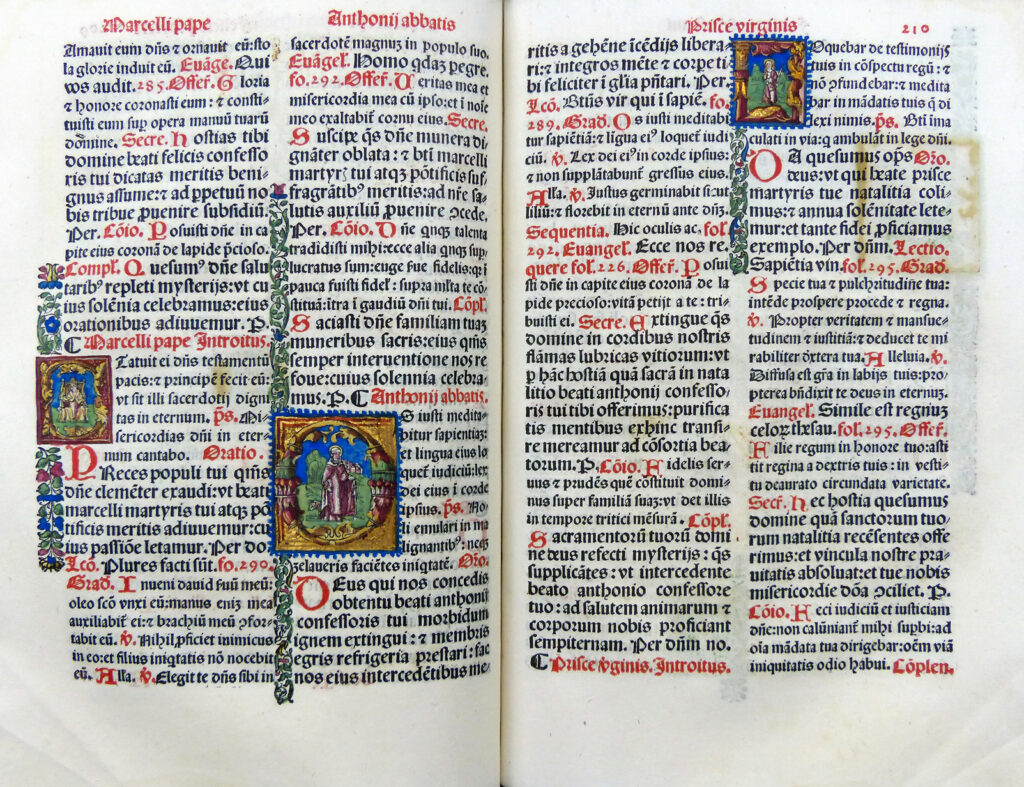 Marcelli pape
Anthonij abbatis
Amauit eum dn̄s ⁊ ornauit eū:sto
la glorie induit eū. Euāge. Qui
vos audit. 285. Offer̄. Gloria
⁊ honore coronasti eum: ⁊ consti/
tuisti eum sup opera manuū tuarū
domine. Secre. Hostias tibi
domine beati felicis confesso
ris tui dicatas meritis beni/
gnus assume: ⁊ ad ꝑpetuū no
bis tribue ꝓuenire subsidiū.
Per. Cōio. Posuisti dn̄e in ca
pite eius coronā de lapide p̄cioso.
Compl. Quesum⁹ dn̄e salu
tarib⁹ repleti mysterijs: vt cu
ius solēnia celebramus: eius
orationibus adiuuemur. P.
Marcelli pape Introitus.
Statuit ei dn̄s testamentū
pacis: ⁊ principē fecit eū:
vt sit illi sacerdotij digni
tas in eternum. ps. Mi/
sericordias dn̄i in eter/
num cantabo. Oratio.
PReces populi tui qn̄s
dn̄e clemēter exaudi: vt beati
marcelli martyris tui atqꝫ pō
tificis meritis adiuuemur: cu
ius passiōe letamur. Per do
Lc̄o. Plures facti sūt. fo. 290.
Grad. Inueni dauid ẜuū meū:
oleo scō vnxi eū: manus eniꝫ mea
auxiliabiť ei: ⁊ brachiū meū ꝯfor/
tabit eū. ꝟ. Nihil ꝓficiet inimicus
in eo: et filius iniqtatis nō nocebit
eū. Alla. ꝟ. Elegit te dn̄s sibi in
sacerdotē magnuꝫ in populo suo.
Euāgel. Homo qdaꝫ pegre.
fo. 292. Offer̄. Veritas mea et
misericordia mea cū ipso: et ī noīe
meo exaltabiť cornu eius. Secre.
Suscipe qs dn̄e munera di
gnāter oblata: ⁊ bti marcelli
martyrꝭ tui atqꝫ pōtificis suf/
fragātib⁹ meritis: ad nr̄e sa/
lutis auxiliū ꝓuenire ꝯcede.
Per. Cōio. Dn̄e qnqꝫ talenta
tradidisti mihi: ecce alia qnqꝫ sup
lucratus sum: euge ẜue fidelis: qꝛ ī
pauca fuisti fidel⁹: supra ml̄ta te cō
stituā: ītra ī gaudiū dn̄i tui. Cōpl.
Saciasti dn̄e familiam tuaꝫ
muneribus sacris: eius qn̄s
semper interuentione nos re
foue: cuius solennia celebra/
mus. P. Anthonij abbatis.
Os iusti medita/
bitur sapientiaꝫ:
et lingua eius lo
queť iudiciū: lex
dei eius ī corde
ipsius. ps. No/
li emulari in ma
lignantib⁹: neqꝫ
zelaueris faciētes iniqtatē. Oro.
DEus qui nos concedis
obtentu beati anthonij
confessoris tui morbidum
ignem extingui: ⁊ membris
egris refrigeria prestari: fac
nos eius intercedētibus me/
Prisce virginis
210
ritis a gehēne īcēdijs libera/
ri: ⁊ integros mēte ⁊ corpe ti
bi feliciter ī glia pn̄tari. Per.
Lc̄o. Btūs vir qui ī sapiē. fo.
289. Grad. Os iusti meditabi
tur sapiētiā: ⁊ lingua ei⁹ loqueť iudi
ciū. ꝟ. Lex dei ei⁹ in corde ipsius:
⁊ non supplātabunť gressus eius.
Alla. ꝟ. Justus germinabit sicut
liliū: ⁊ florebit in eternū ante dn̄ꝫ.
Sequentia. Hic oculis ac. fol.
292. Euangel. Ecce nos re.
quere fol. 226. Offer̄. Posui
sti dn̄e in capite eius coronā de la
pide precioso: vitā petijt a te: tri/
buisti ei. Secre. Extingue qs
domine in cordibus nostris
flāmas lubricas vitiorum: vt
ꝑ hāc hostiā quā sacrā in nata
litio beati anthonij confesso/
ris tui tibi offerimus: purifica
tis mentibus exhinc transi/
re mereamur ad cōsortia bea/
torum. P. Cōio. Fidelis ser/
uus ⁊ prudēs quē cōstituit domi/
nus super familiā suaꝫ: vt det illis
in tempore tritici mēsurā. Cōpl.
Sacramentorū tuorū domi
ne deus refecti mysterijs: qs
supplicātes: vt intercedente
beato anthonio confessore
tuo: ad salutem animarum ⁊
corporum nobis proficiant
sempiternam. Per dn̄m no.
Prisce v̄ginis. Introitus.
Loquebar de testimonijs
tuis in cōspectu regū: ⁊
nō ꝯfundebar: ⁊ medita
bar in mādatis tuis q di
lexi nimis. ps. Bti īma
culati in via: q ambulāt in lege dn̄i.
DA quesumus op̄s Oro.
deus: vt qui beate prisce
martyris tue natalitia coli/
mus: ⁊ annua solēnitate lete/
mur: et tante fidei ꝓficiamus
exemplo. Per dn̄m. Lectio.
Sapiētia vin. fol. 295. Grad.
Specie tua ⁊ pulchritudine tua:
intēde prospere procede ⁊ regna.
ꝟ. Propter veritatem ⁊ mansue/
tudinem ⁊ iustitiā: ⁊ deducet te mi
rabiliter dextera tua. Alleluia. ꝟ.
Diffusa est gr̄a in labijs tuis: pro/
pterea bn̄dixit te deus in eternuꝫ.
Euangel. Simile est regnuꝫ
celoꝝ thesau. fol. 295. Offer̄.
Filie regum in honore tuo: asti
tit regina a dextris tuis: in vesti/
tu deaurato circundata varietate.
Secr̄. Hec hostia quesumus
domine quā sanctorum tuo/
rum natalitia recēsentes offe
rimus: et vincula nostre pra/
uitatis absoluat: et tue nobis
misericordie dōa ꝯciliet. P.
Cōio. Feci iudiciū et iusticiam
dn̄e: non calūnianť mihi supbi: ad
oīa mādata tua dirigebar: oēm viā
iniquitatis odio habui. Cōplen.